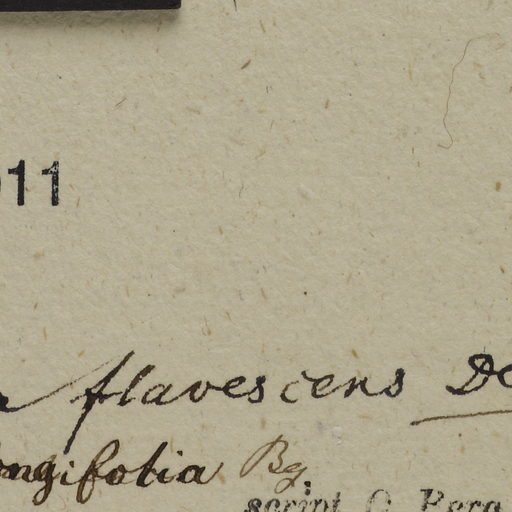 011
flavescens De
ongifolia Bg.
script. O. Berg